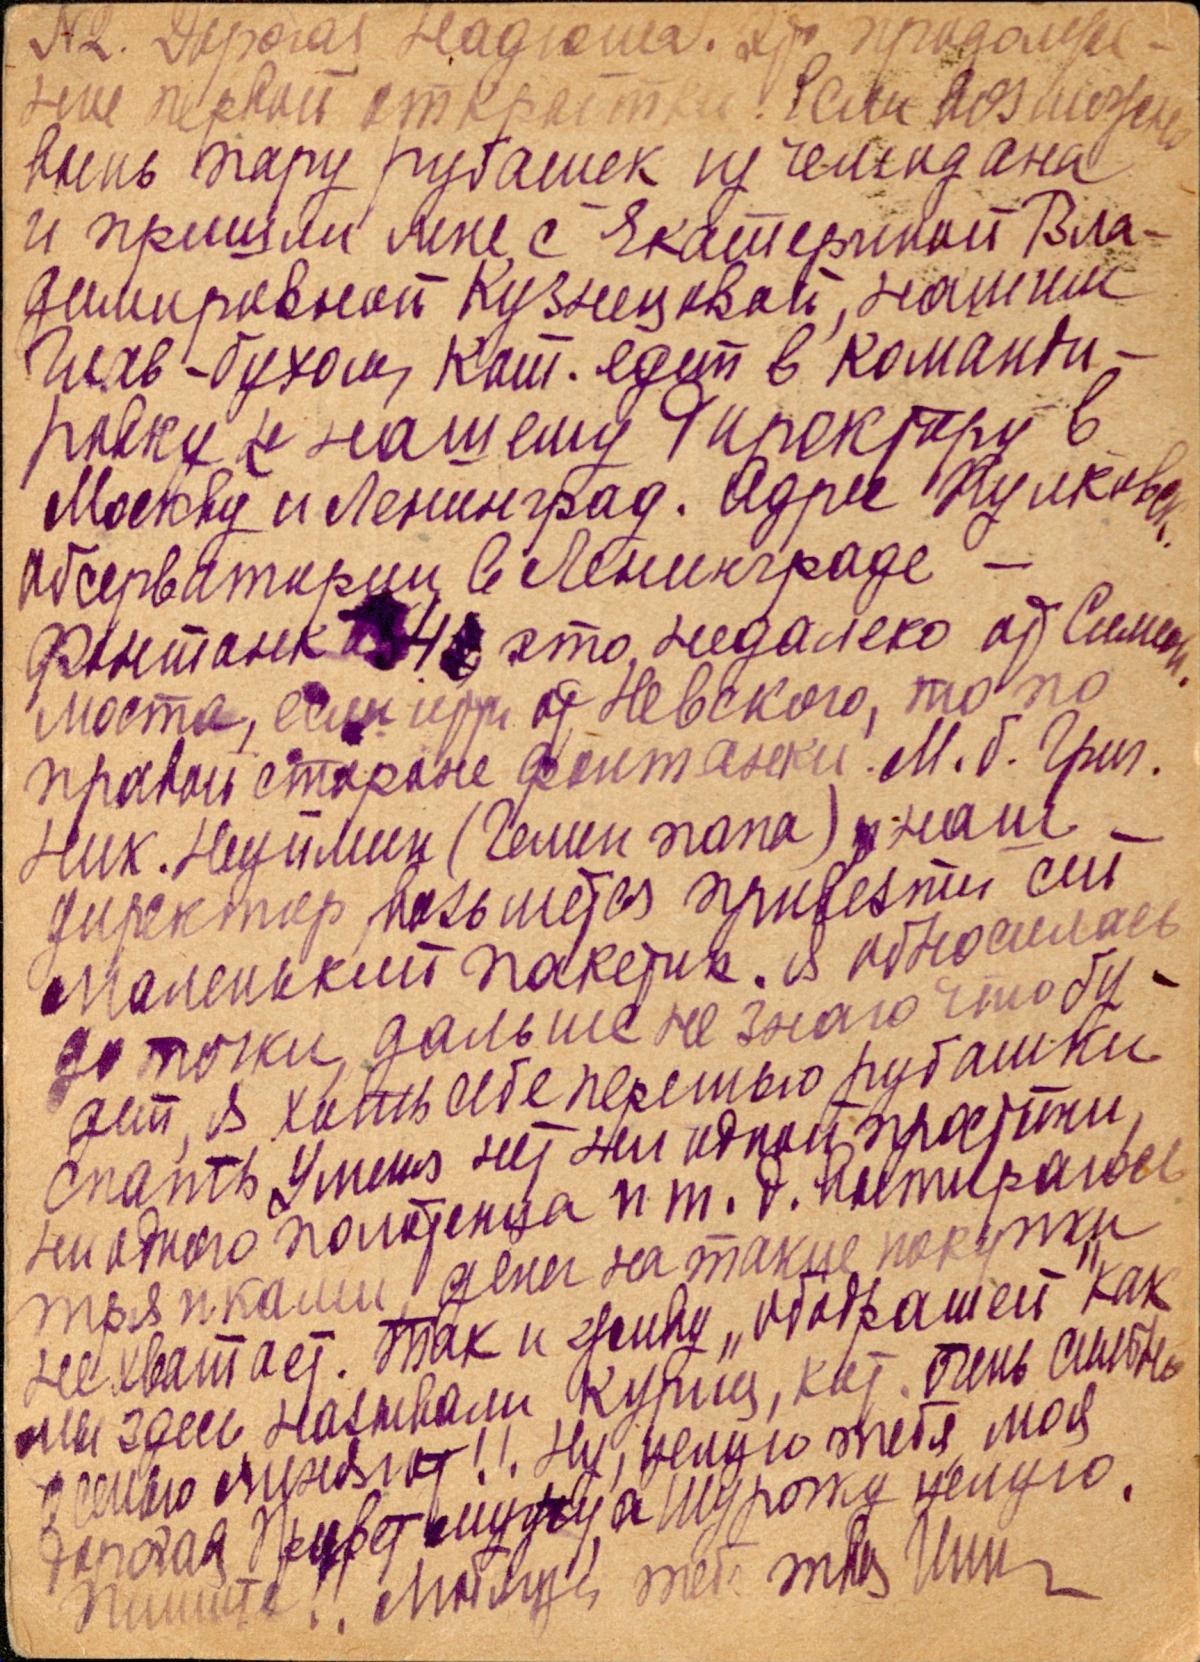 N2. Дорогая Надюша. Это продолже-
ние первой открытки! Если возможно
вынь пару рубашек из чемодана
и пришли мне с Екатериной Вла-
димировной Кузнецовой, нашим
Глав-бухом, кот. едет в команди-
ровку к нашему Директору в
Москву и Ленинград. Адрес Пулковск.
обсерватории в Ленинграде —
Фонтанка 34 это недалеко от Симеон.
моста, если идти от Невского, то по
правой стороне Фонтанки. М.б. Григ.
Ник. Неуймин (Гелин папа) наш
директор возьмется привезти сей
маленький пакетик. Я обносилась
до точки, дальше не знаю что бу-
дет, я хоть себе перешью рубашки
спать. У меня нет ни одной простыни,
ни одного полотенца и т.д. вытираюсь
тряпками, денег на такие покупки
не хватает. Так и живу „ободрашей" как
мы здесь называли куриц, кот. очень смешно
осенью линяют!! Ну, целую тебя моя
дорогая Привет мужу, а Шурочку целую.
Пишите!! Любящая тебя твоя